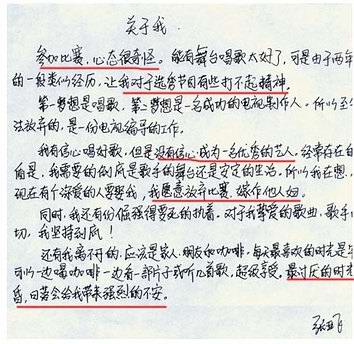 关于我.
参加比赛,心态很奇怪。能有舞台唱歌太好了,可是由于两年
的一段类似经历,让我对于选秀节目有些打不起精神。
第一梦想是唱歌,第二梦想是一名成功的电视制作人。所以至
法放弃的,是一份电视编导的工作。
我有信心唱好歌,但是没有信心成为一名优秀的艺人。经常存在的
角是,我需要的到底是歌手的舞台还是安定的生活。所以我在想,
现在有个深爱的人要娶我,我愿意放弃比赛,嫁作他人妇。
同时,我还有份倔强得要死的执着。对于我挚爱的歌曲,歌手
切,我坚持到底!
还有我离不开的,应该是家人、朋友和咖啡,每天最喜欢的时光是
可以一边喝咖啡一边看一部片子或听几首歌,超级享受,最讨厌的时光
昏,日落会给我带来强烈的不安。
张亚飞